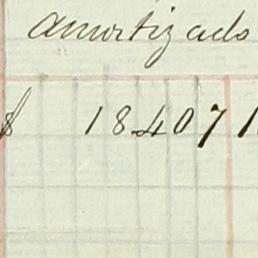 amortizado
$ 18407 1